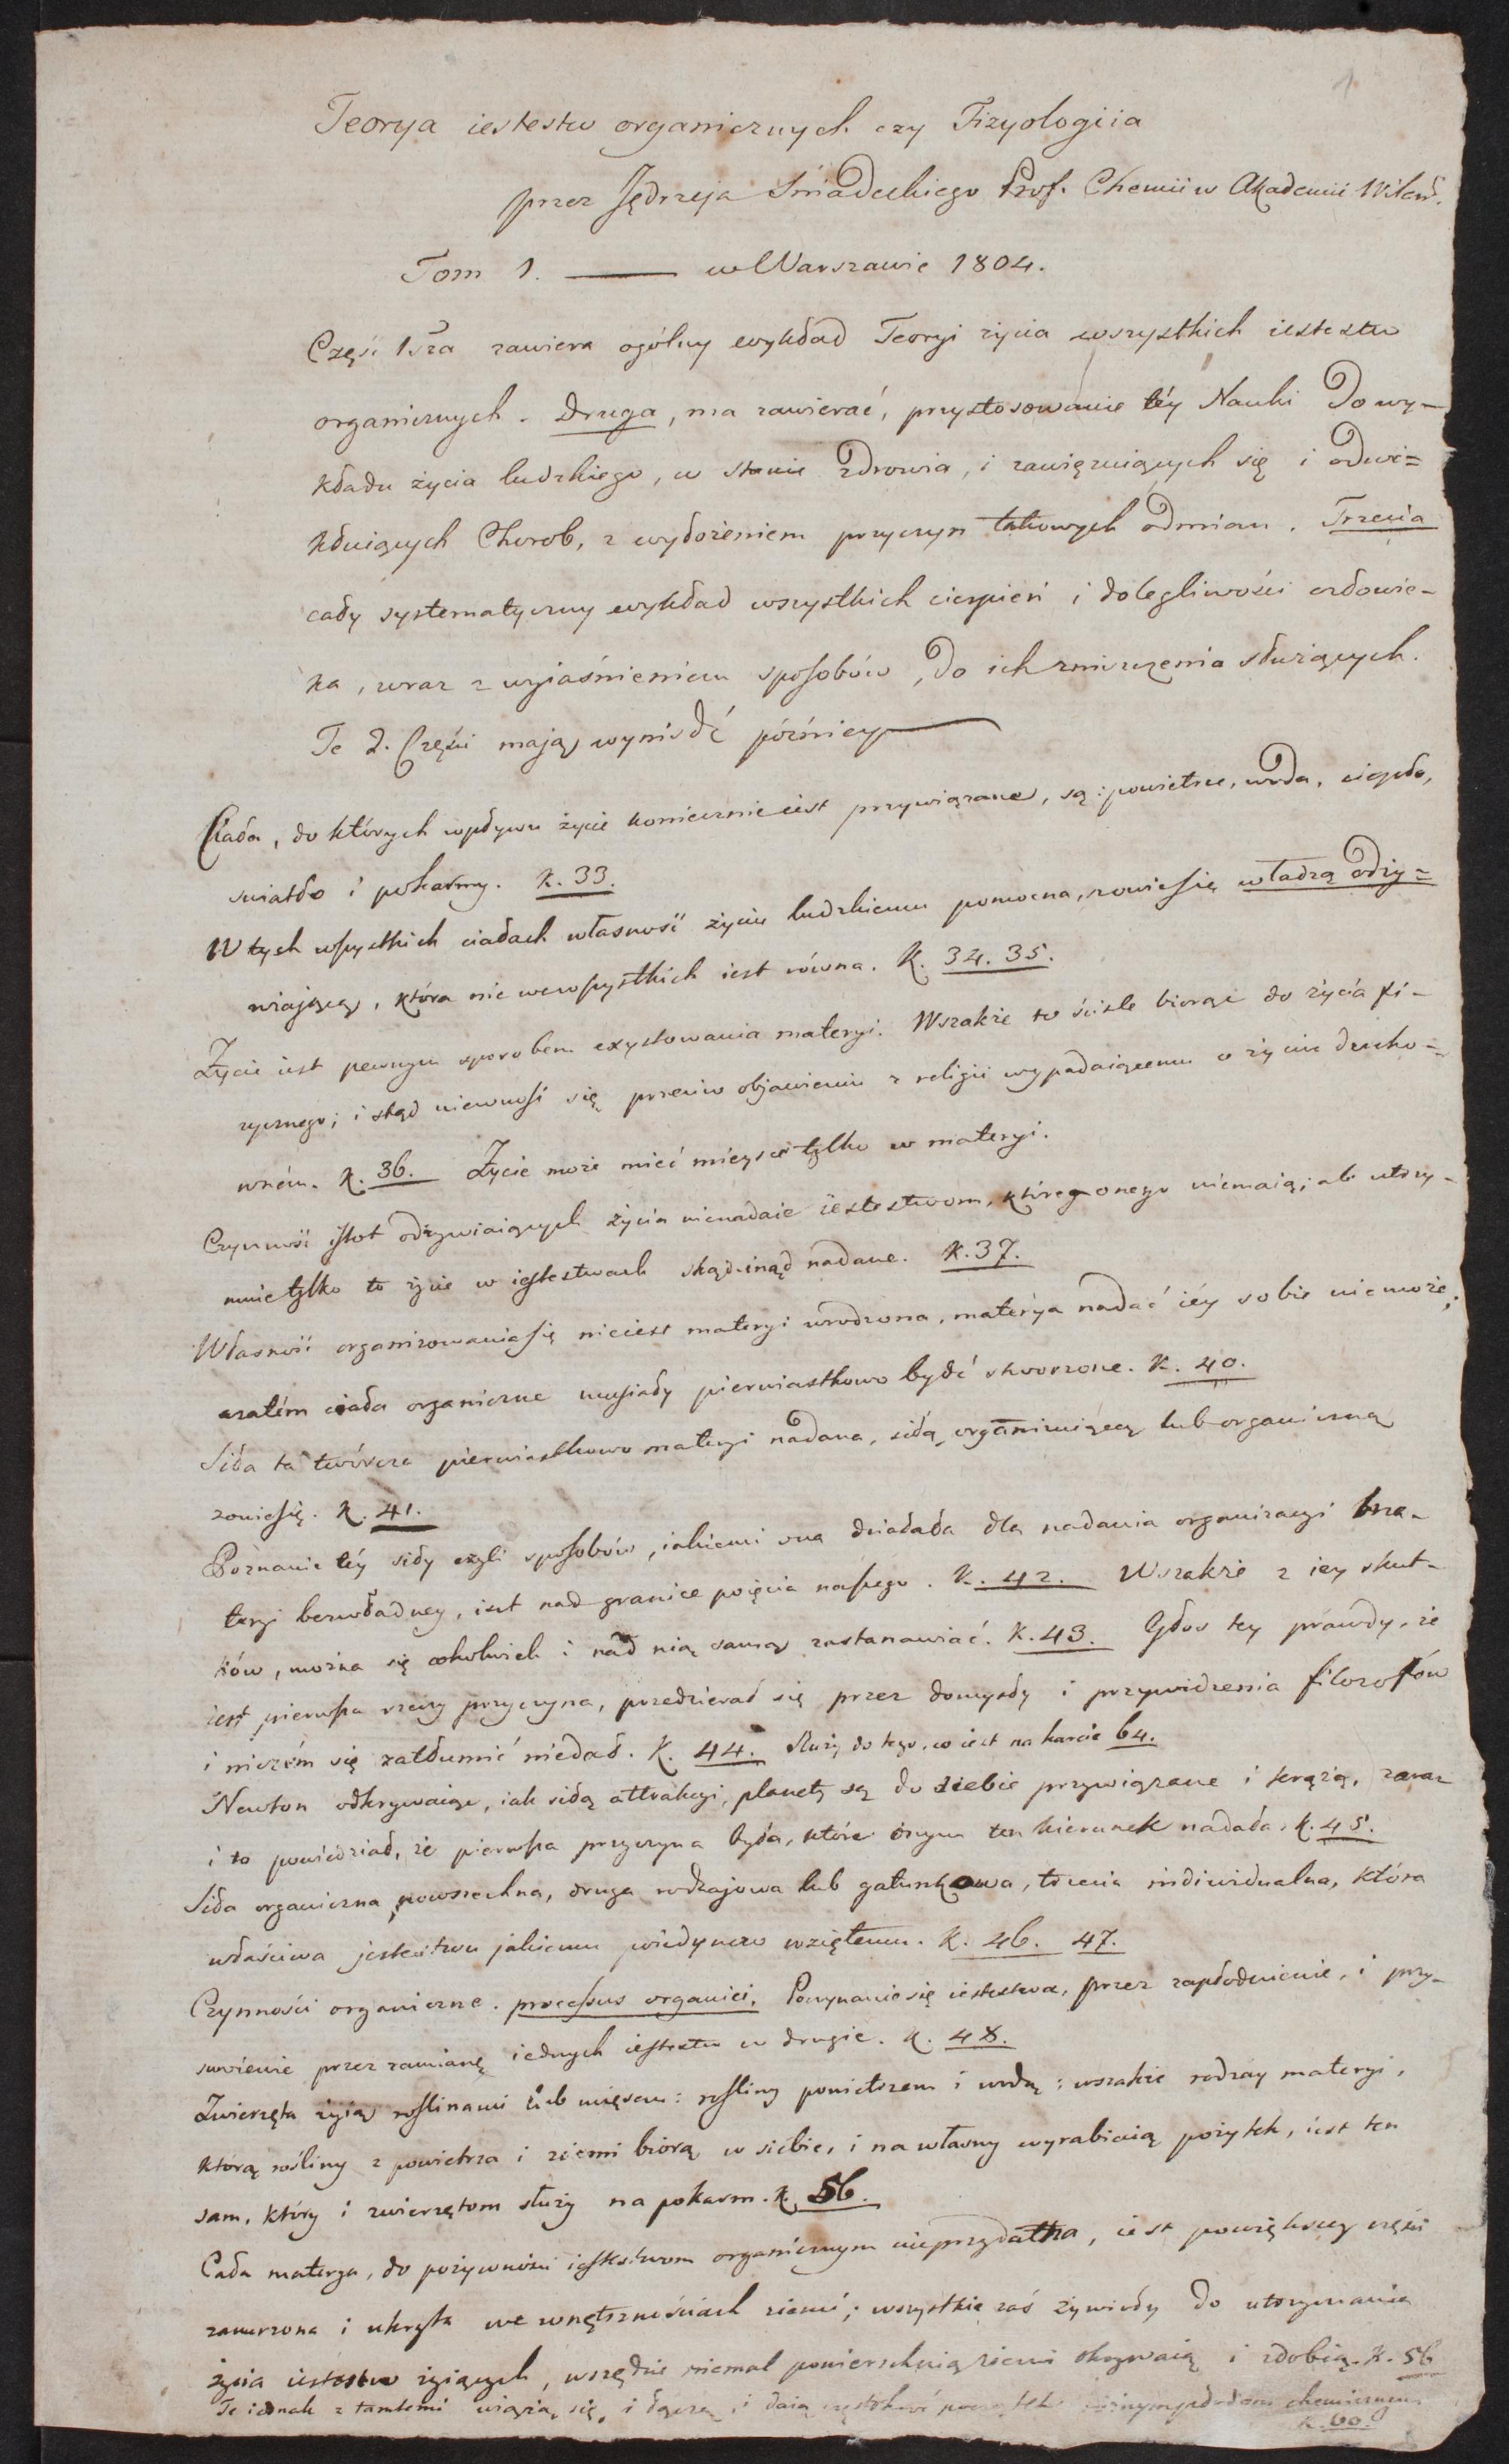 1
Teorya iestestw organicznych czy Fizyologiia
przez Jędrzeja Śniadeckiego Prof. Chemii w Akademii Wileń.
Tom 1. — w Warszawie 1804.
Część 1sza zawiera ogólny wykład Teoryi życia wszystkich iestestw
organicznych. Druga, ma zawierać, przystosowanie téy Nauki do wy-
kładu życia ludzkiego, w stanie zdrowia, i zawięzuiących się i odwi=
kłuiących Chorob, z wyłożeniem przyczyn takowych odmian. Trzecia
cały systematyczny wykład wszystkich cierpień i dolegliwości człowie-
ka, wraz z wyiaśnieniem sposobów, do ich zniszczenia służących.
Te 2. Części mają wynisdź pózniey
Ciała, do których wpływu życie koniecznie iest przywiązane, są: powietrze, woda, ciepło,
swiatło i pokarmy. K. 33.
W tych wszystkich ciałach własność życiu ludzkiemu pomocna, zowie się władzą odży=
wiającą, która nie we wszystkich iest równa. K. 34. 35.
Życie iest pewnym sposobem exystowania materyi. Wszakże to ściśle biorąc do życia fi-
zycznego; i stąd niewnosi się przeciw objawieniu z religii wypadaiącemu o życiu ducho=
wném. K. 36. Życie może mieć mieysce tylko w materyi.
Czynność istot odżywiaiących życia nienadaie iestestwom, które onego niemaią; ale utrzy-
muie tylko to życie w iestestwach skądinąd nadane. K. 37.
Własność organizowania się nieiest materyi wrodzona, materya nadać iéy sobie niemoże;
azatém ciała organiczne musiały pierwiastkowo bydź stworzone. K. 40.
Siła ta twórcza pierwiastkowo materyi nadana, siłą organizuiącą lub organiczną
zowie się. K. 41.
Poznanie téy siły czyli sposobów, iakiemi ona działała dla nadania organizacyi ma-
teryi bezwładney, iest nad granice poięcia naszego. K. 42. Wszakże z iey skut-
ków, można się cokolwiek i nad nią samą zastanawiać. K. 43. Głos tey prawdy, że
iest pierwsza rzeczy przyczyna, przedzierał się przez domysły i przywidzenia filozofów
i niczém się zatłumić niedał. K. 44. Służy do tego, co iest na karcie 64.
Newton odkrywaiąc, iak siłą attrakcyi, planety są do siebie przywiązane i krążą, zaraz
i to powiedział, że pierwsza przyczyna była, która onym ten kierunek nadała. K. 45.
Siła organiczna powszechna, druga rodzajowa lub gatunkowa, trzecia individualna, która
właściwa jestestwu jakiemu poiedynczo wziętemu. K. 46. 47.
Czynności organiczne. processus organici. Poczynanie się iestestwa, przez zapłodnienie, i przy-
swoienie przez zamianę iednych iestestw w drugie. K. 48.
Zwierzęta żyią roślinami lub mięsem: rośliny powietrzem i wodą: wszakże rodzay materyi,
którą rośliny z powietrza i ziemi biorą w siebie, i na własny wyrabiaią pożytek, iest ten
sam, który i zwierzętom służy na pokarm. K. 56.
Cała materya, do pożywności iestestwom organicznym nieprzydatna, iest powiększey części
zawarzona i ukryta we wnętrznościach ziemi; wszystkie zaś żywioły do utrzymania
życia iestestw żyiących, wszędzie niemal powierzchnią ziemi okrywaią i zdobią. K. 56
Te iednak z tamtemi wiążą się, i łączą i daią częstokroć początek chemicznym
K. 60.